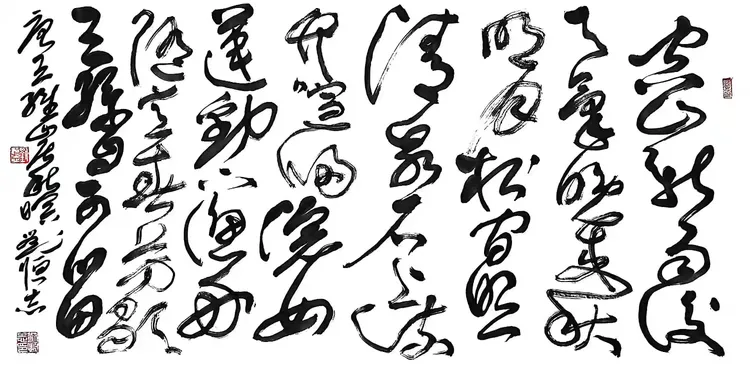 空山新雨後
天氣晚来秋
明月松间照
清泉石上流
竹喧归浣女
莲動下渔舟
随意春芳歇
王孫自可留
唐王維山居秋暝 恒志